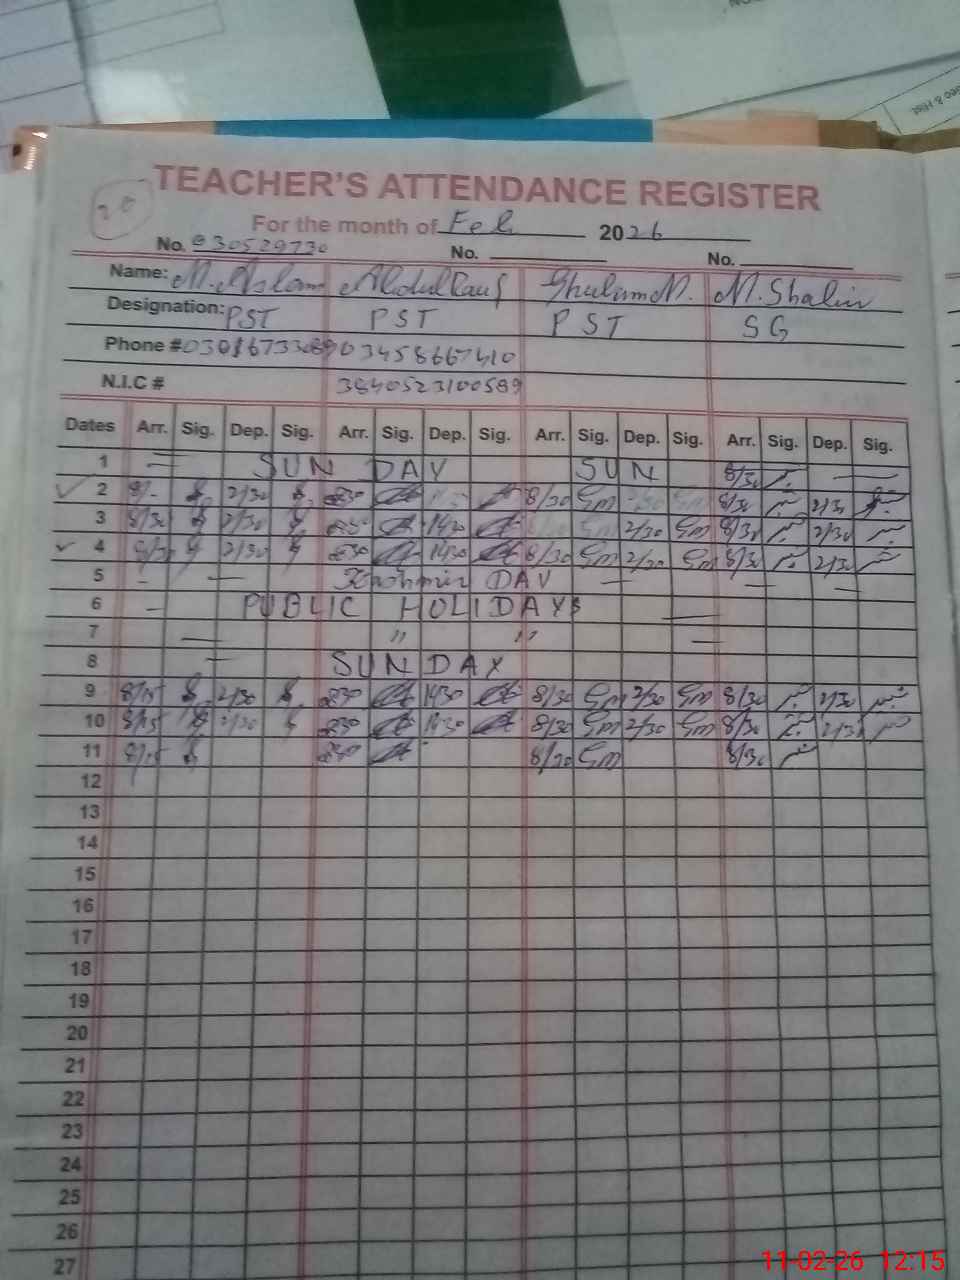 20
TEACHER'S ATTENDANCE REGISTER
For the month of Feb 2026
No. 30529730 No. No.
Name: M. Aslam Abdul Rauf Ghulam M. M. Shahir
Designation: PST PST PST SG
Phone # 03016733089 03458667410
N.I.C # 3840523100589
Dates Arr. Sig. Dep. Sig. Arr. Sig. Dep. Sig. Arr. Sig. Dep. Sig. Arr. Sig. Dep. Sig.
1 SUN DAY SUN 8/30
2 8/- 2/30 830 8/30 Gm Gm 8/30 2/30
3 8/30 2/30 830 1430 2/30 Gm 8/30 2/30
4 8/30 2/30 830 1430 8/30 Gm 2/30 Gm 8/30 2/30
5 - Kashmir DAY
6 - PUBLIC HOLIDAYS
7 " "
8 SUNDAY
9 8/15 2/30 830 1430 8/30 Gm 2/30 Gm 8/30 2/30
10 8/15 2/30 830 1430 8/30 Gm 2/30 Gm 8/30 2/30
11 8/15 830 8/30 Gm 8/30
12
13
14
15
16
17
18
19
20
21
22
23
24
25
26
27
11-02-26 12:15